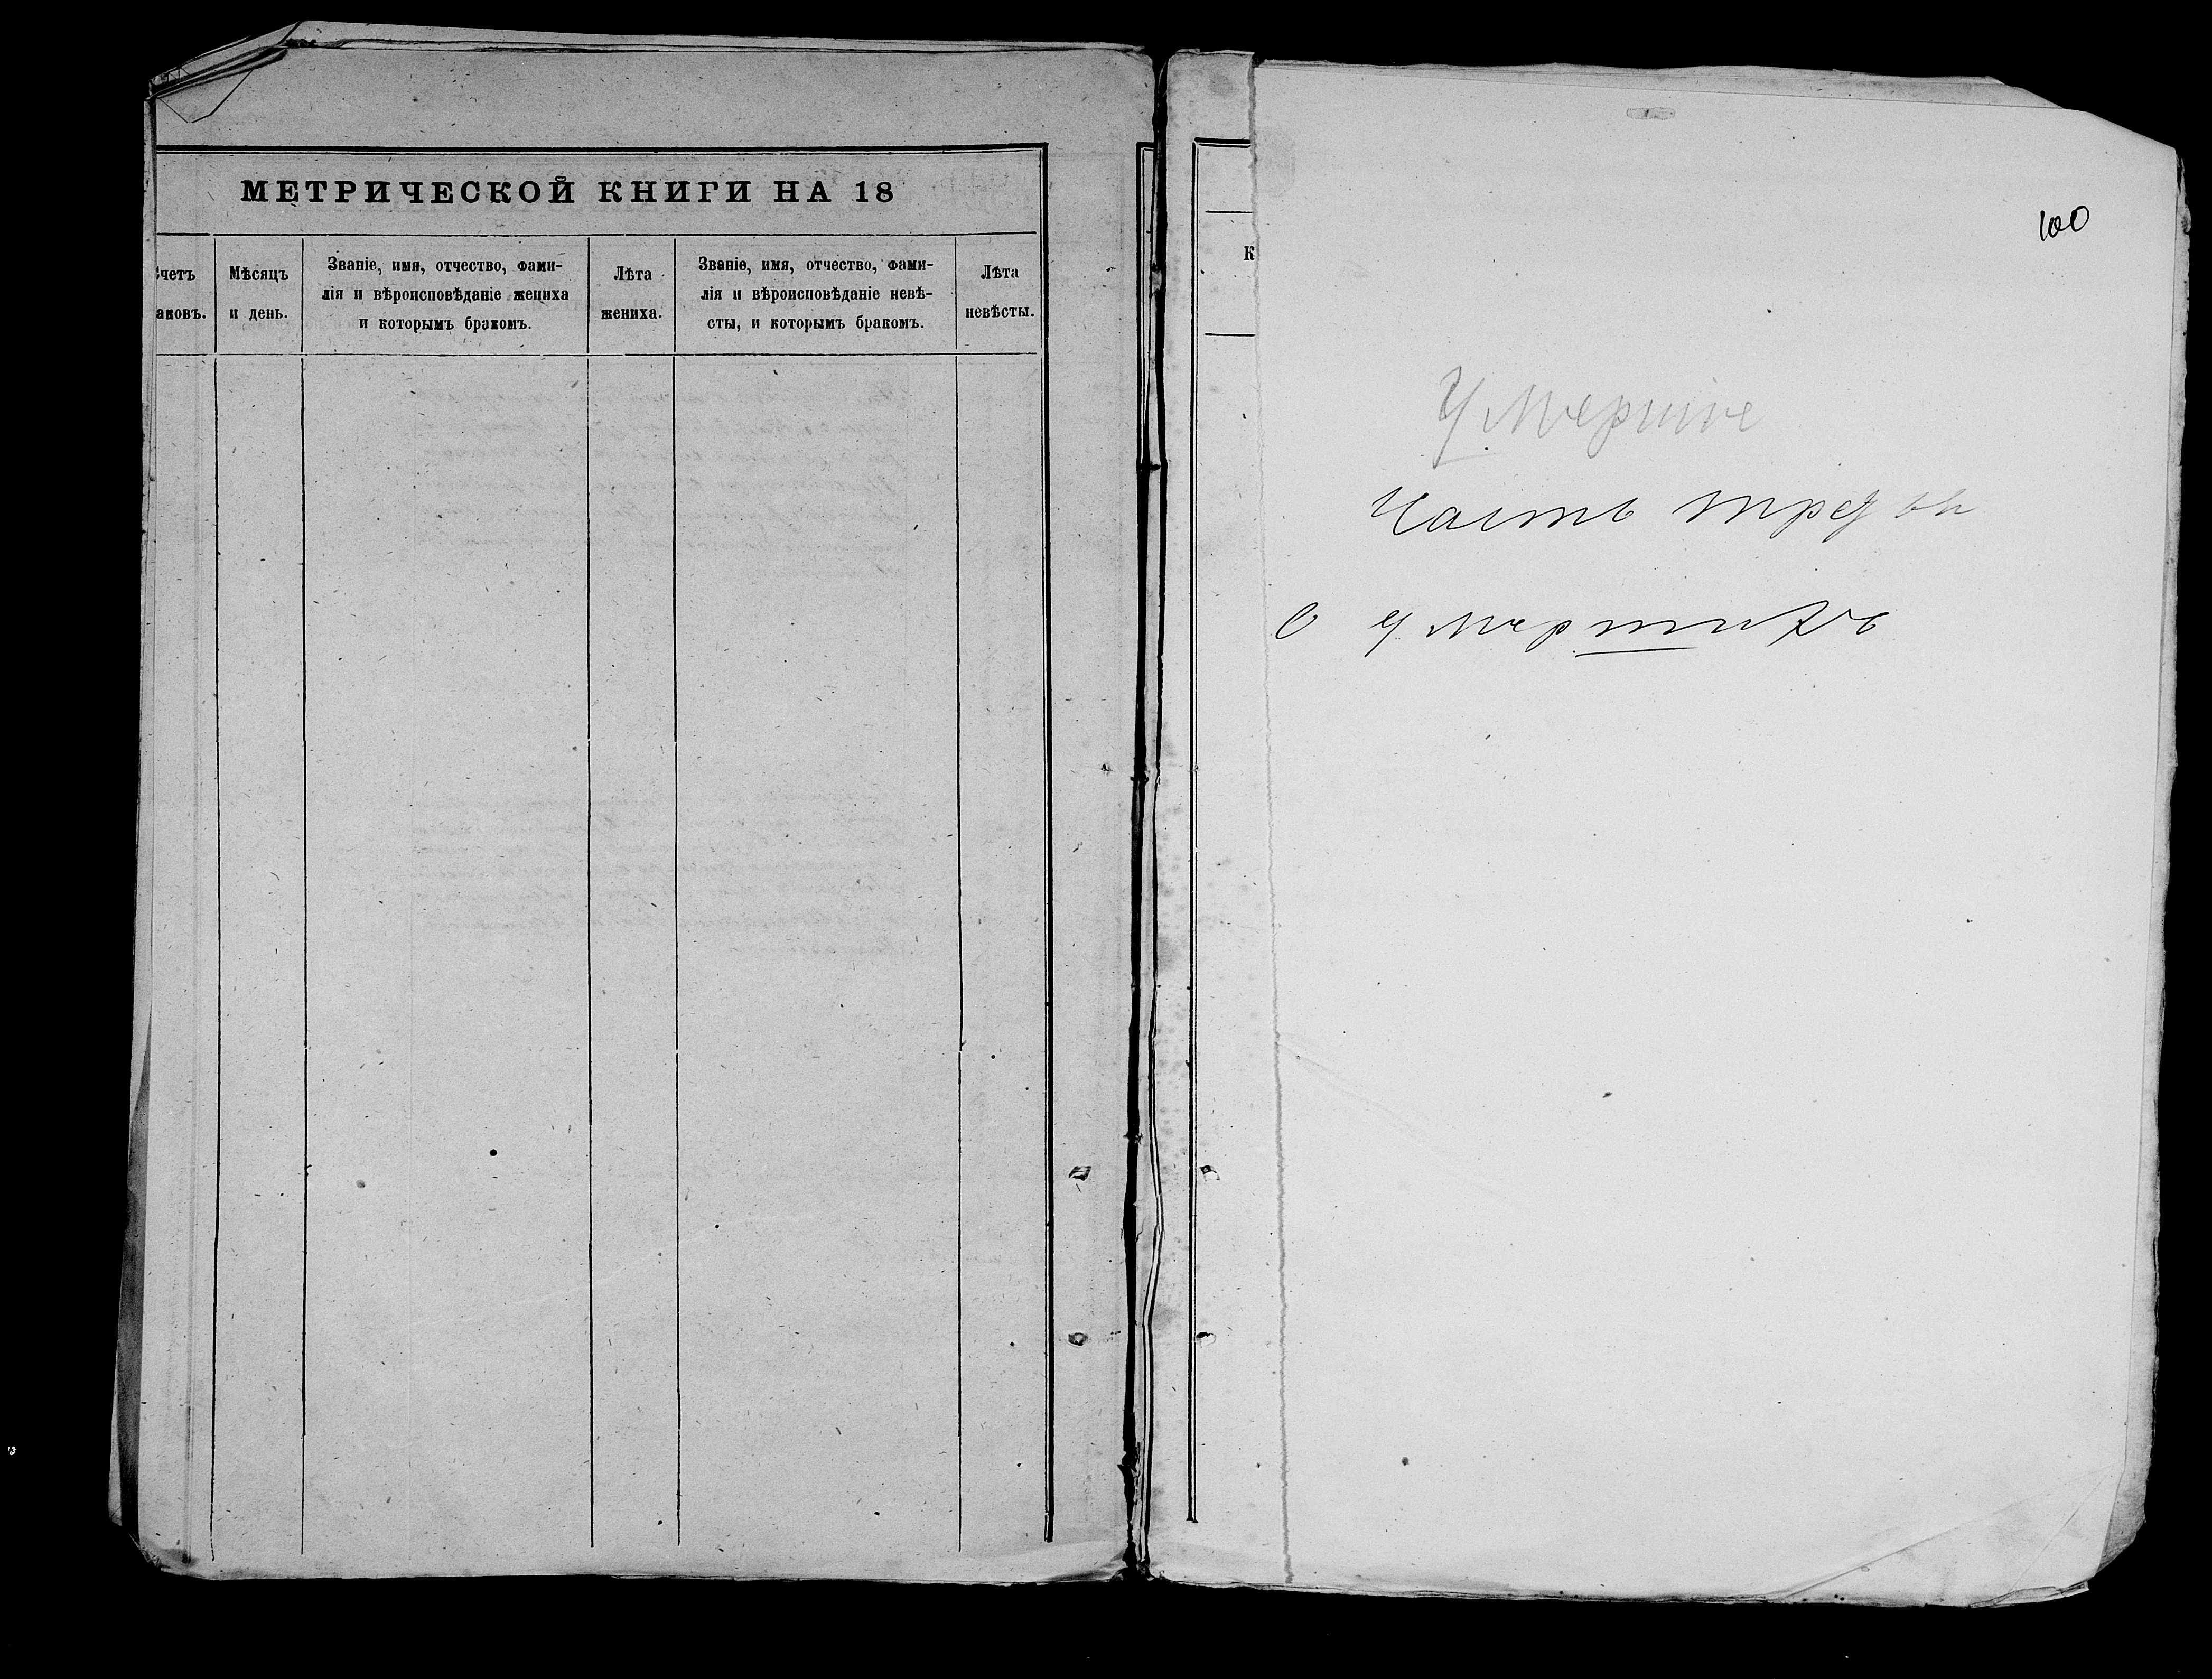 МЕТРИЧЕСКОЙ КНИГИ НА 18
счетъ
аковъ.
Мѣсяцъ
и день.
Званіе, имя, отчество, фами-
лія и вѣроисповѣданіе жениха
и которымъ бракомъ.
Лѣта
жениха.
Званіе, имя, отчество, фами-
лія и вѣроисповѣданіе невѣ-
сты, и которымъ бракомъ.
Лѣта
невѣсты.
К
100
Умершие
Часть
О умершихъ